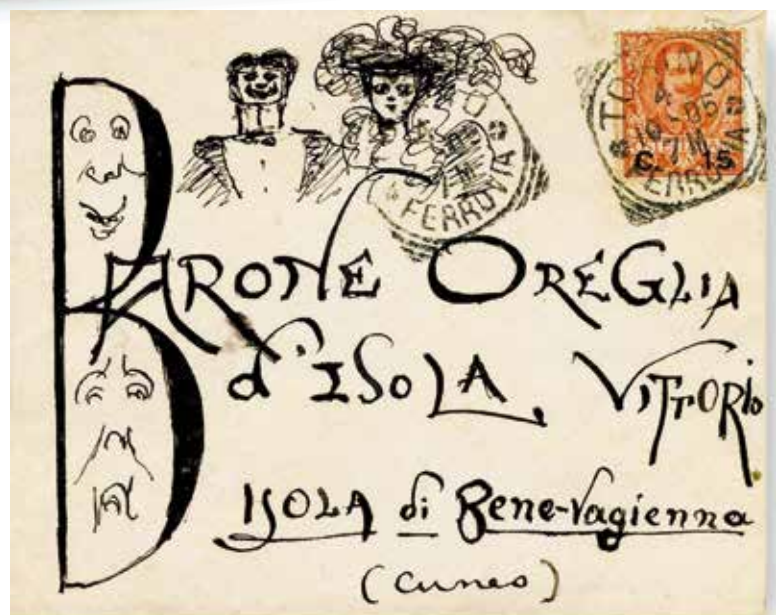 TORINO
10-05
7M
C. 15
FERROVIA
FERROVIA
BARONE OREGLIA
d'ISOLA, VITTORIO
ISOLA di Bene-Vagienna
(Cuneo)